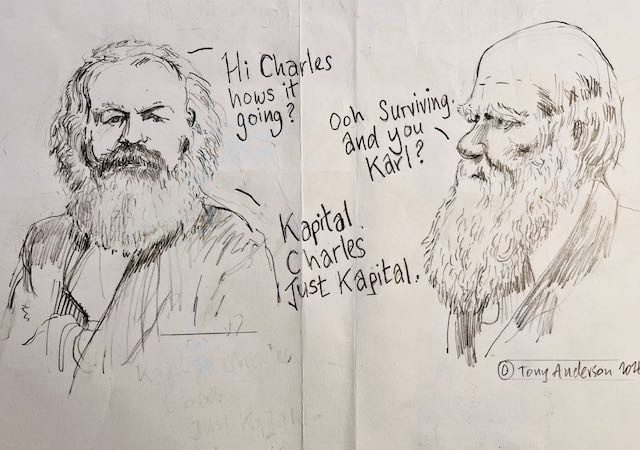 Hi Charles
hows it
going?
Ooh Surviving.
and you
Karl?
Kapital.
Charles
Just Kapital.
Tony Anderson